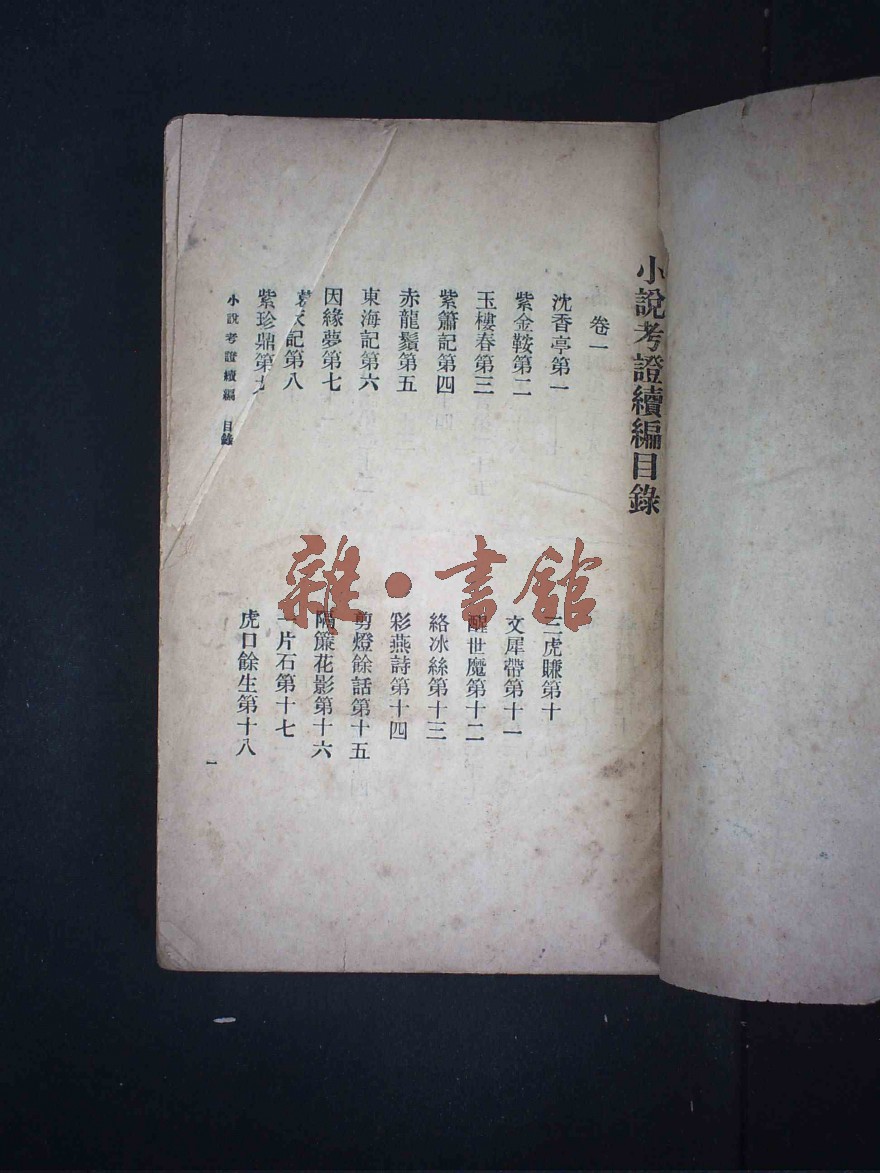 小說考證續編目錄
卷一
沈香亭第一
紫金鞍第二
玉樓春第三
紫簫記第四
赤龍鬚第五
東海記第六
因緣夢第七
記第八
紫珍鼎第九
三虎賺第十
文犀帶第十一
醒世魔第十二
絡冰絲第十三
彩燕詩第十四
剪燈餘話第十五
隔簾花影第十六
一片石第十七
虎口餘生第十八
小說考證續編 目錄
一
雜·書館